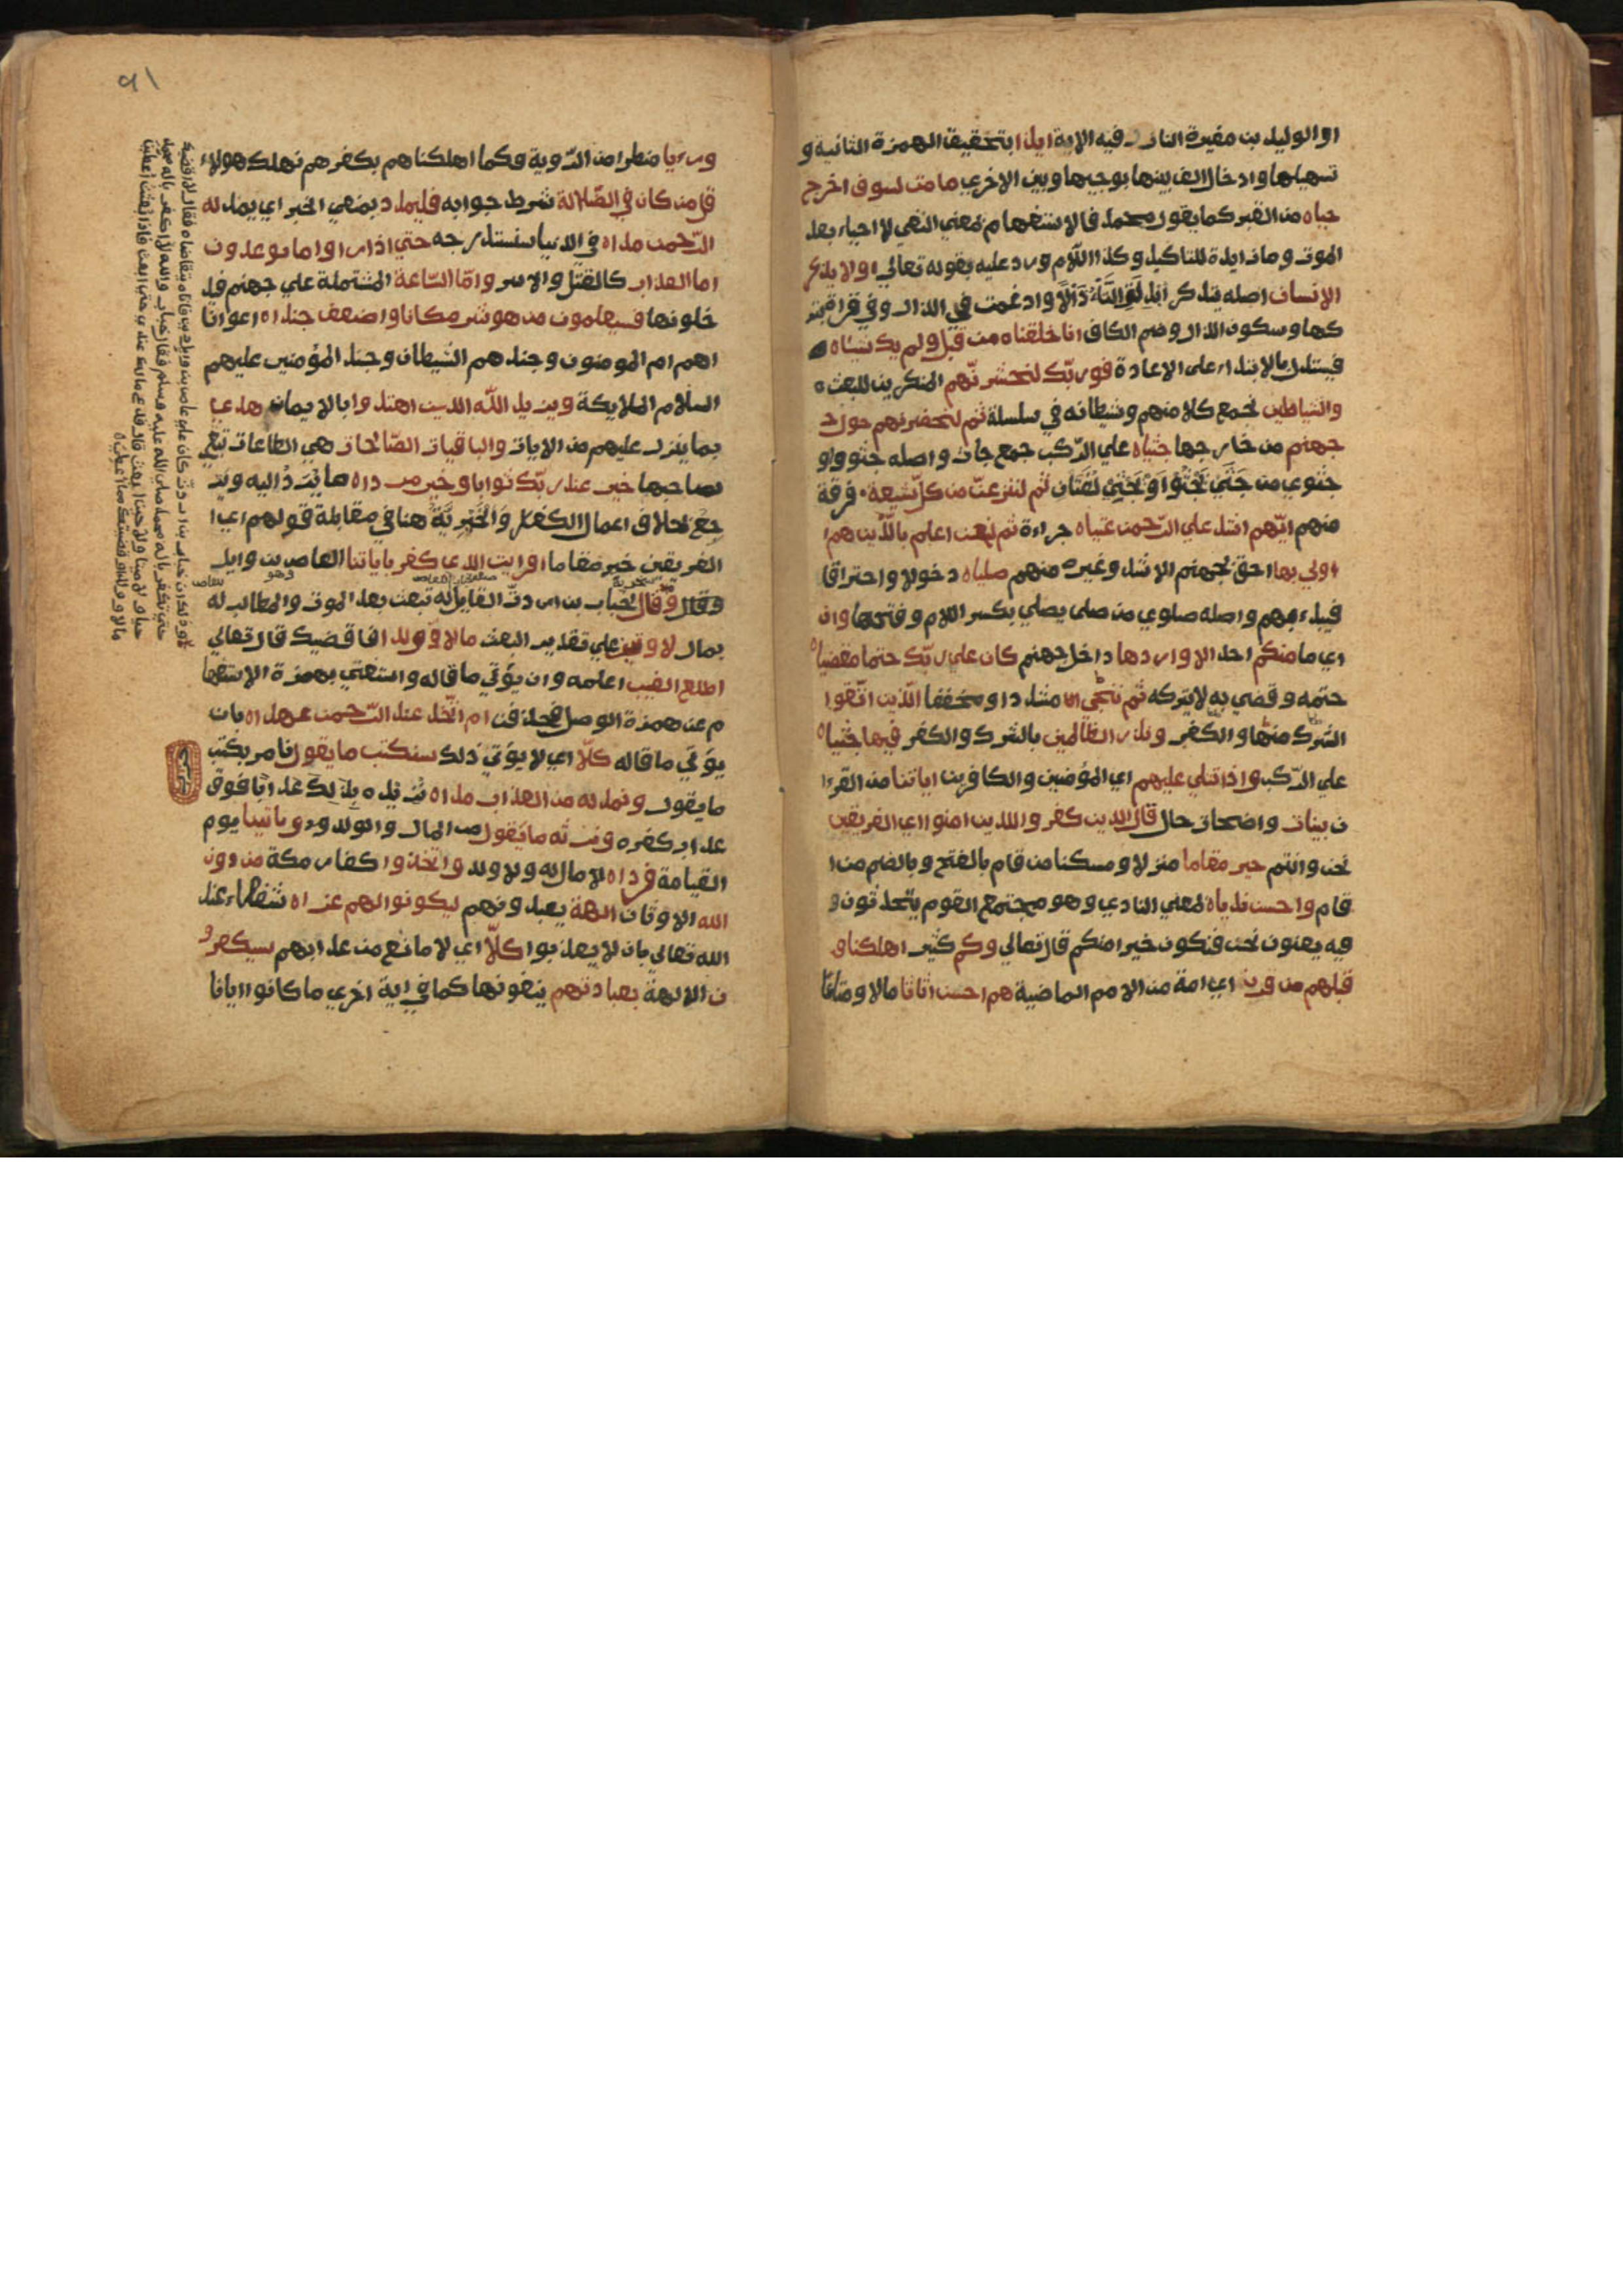 او الوليد بن مغيرة النازل فيه الاية ايذا بتحقيق الهمزة الثانية و
تسهيلها وادخال الف بينها بوجهيها وبين الاخري ما مت لسوف اخرج
حياه من القبر كما يقول محمد فالاستفهام بمعني النفي لا احياء بعد
الموت وما زايدة للتاكيد وكذا اللام ورد عليه بقوله تعالي اولا يذكر
الانسان اصله يتذكر ابدلت التاء ذالا وادغمت في الذال وفي قراة
كها وسكون الذال وضم الكاف انا خلقناه من قبل ولم يك شياه
فيستدل بالابتداء علي الاعادة فوربّك لنحشرنّهم المنكرين للبعث
والشياطين نجمع كلا منهم وشيطانه في سلسلة ثم لنحضرنهم حول
جهنم من خارجها جثياه علي الرّكب جمع جاث واصله جثوو او
جثوي من جثي يجثو او يجثي لغتان ثم لننزعنّ من كلّ شيعة فرقة
منهم ايّهم اشد علي الرّحمن عتياه جراءة ثم لنحن اعلم بالّذين هم
اولي بها احق بجهنم الاشد وغيره منهم صلياه دخولا واحتراقا
فيبدء بهم واصله صلوي من صلي يصلي بكسر اللام وفتحها وان
اي ما منكم احد الا واردها داخل جهنم كان علي ربّك حتما مقضياه
حتمه وقضي به لا يتركه ثم ننجّي مشددا ومخففا الّذين اتّقوا
الشرك منها والكفر ونذر الظّالمين بالشرك والكفر فيها جثياه
علي الرّكب واذا تتلي عليهم اي المؤمنين والكافرين اياتنا من القرءا
ن بينات واضحات حال قال الذين كفروا للذين امنوا اي الفريقين
نحن وانتم خير مقاما منزلا ومسكنا من قام بالفتح وبالضم من ا
قام واحسن ندياه بمعني النادي وهو مجتمع القوم يتحدثون و
فيه يعنون نحن فنكون خيرا منكم قال تعالي وكم كثير اهلكنا و
قبلهم من قرن اي امة من الامم الماضية هم احسن اثاثا مالا ومتاعا
ورءيا منظرا من الرّوية فكما اهلكناهم بكفرهم نهلك هولاء
قل من كان في الضّلالة شرط جوابه فليمدد بمعني الخبر اي يمد له
الرّحمن مداه في الدنيا يستدرجه حتي اذا راوا ما يوعدون
اما العذاب كالقتل والاسر وامّا السّاعة المشتملة علي جهنم فيد
خلونها فسيعلمون من هو شر مكانا واضعف جنداه اعوانا
اهم ام المومنون وجندهم الشيطان وجند المؤمنين عليهم
السلام الملايكة ويزيد اللّه الذين اهتدوا بالايمان هدي
بما ينزل عليهم من الايات والباقيات الصّالحات هي الطاعات تبقي
لصاحبها خير عند ربّك ثوابا وخير مرداه ما يرد اليه وير
جع بخلاف اعمال الكفار والخيريّة هنا في مقابلة قولهم اي ا
الفريقين خير مقاما افرايت الذي كفر باياتنا العاص بن وايل
وقال لخباب بن ارت القايل له تبعث بعد الموت والمطالب له
بمال لاوتين علي تقدير البعث مالا وولدا فاقضيك قال تعالي
اطلع الغيب اعلمه وان يؤتي ما قاله واستغني بهمزة الاستفها
م عن همزة الوصل فحذفت ام اتّخذ عند الرّحمن عهداه بان
يؤتي ما قاله كلّا اي لا يؤتي ذلك سنكتب ما يقول نامر بكتب
ما يقول ونمد له من العذاب مداه نزيده بذلك عذابا فوق
عذاب كفره ونرثه ما يقول من المال والولد وياتينا يوم
القيامة فرداه لا مال له ولا ولد واتخذوا كفار مكة من دون
الله الاوثان الهة يعبدونهم ليكونوا لهم عزاه شفعاء عند
الله تعالي بان لا يعذبوا كلّا اي لا مانع من عذابهم سيكفرو
ن الالهة بعبادتهم ينفونها كما في اية اخري ما كانوا ايانا
٩١